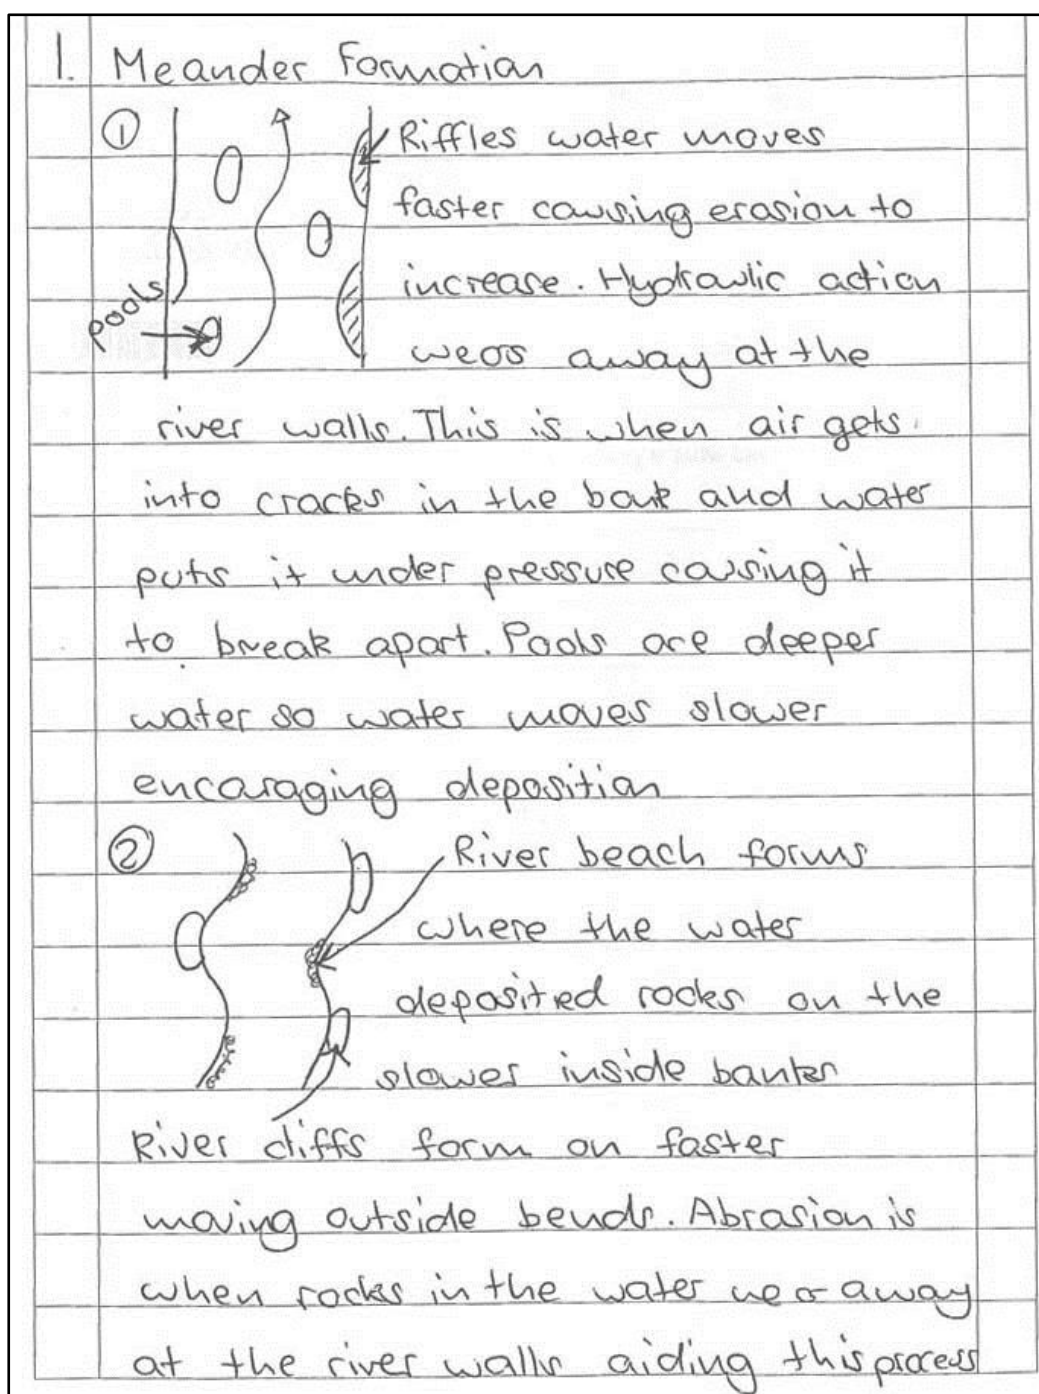 1. Meander Formation
① Riffles water moves
faster causing erosion to
increase. Hydraulic action
pools
wears away at the
river walls. This is when air gets
into cracks in the bank and water
puts it under pressure causing it
to break apart. Pools are deeper
water so water moves slower
encouraging deposition
② River beach forms
where the water
deposited rocks on the
slower inside banks
River cliffs form on faster
moving outside bends. Abrasion is
when rocks in the water wear away
at the river walls aiding this process